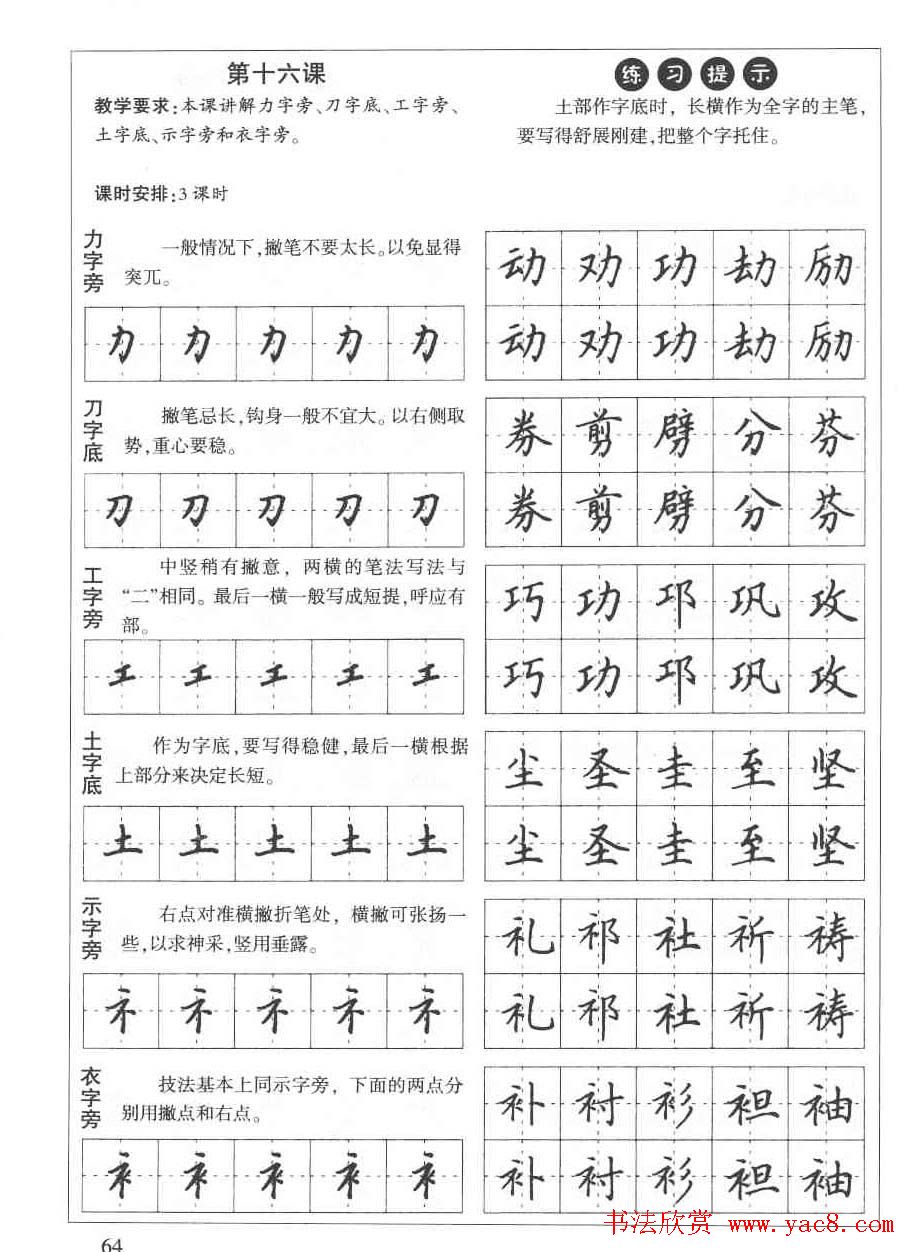 第十六课
教学要求:本课讲解力字旁、刀字底、工字旁、
土字底、示字旁和衣字旁。
课时安排:3 课时
练习提示
土部作字底时，长横作为全字的主笔，
要写得舒展刚建,把整个字托住。
力字旁
一般情况下,撇笔不要太长。以免显得
突兀。
力 力 力 力 力
动 劝 功 劫 励
动 劝 功 劫 励
刀字底
撇笔忌长,钩身一般不宜大。以右侧取
势,重心要稳。
刀 刀 刀 刀 刀
券 剪 劈 分 芬
券 剪 劈 分 芬
工字旁
中竖稍有撇意，两横的笔法写法与
“二”相同。最后一横一般写成短提,呼应有
部。
工 工 工 工 工
巧 功 邛 巩 攻
巧 功 邛 巩 攻
土字底
作为字底,要写得稳健,最后一横根据
上部分来决定长短。
土 土 土 土 土
尘 圣 圭 至 坚
尘 圣 圭 至 坚
示字旁
右点对准横撇折笔处，横撇可张扬一
些,以求神采,竖用垂露。
礻 礻 礻 礻 礻
礼 祁 社 祈 祷
礼 祁 社 祈 祷
衣字旁
技法基本上同示字旁，下面的两点分
别用撇点和右点。
衤 衤 衤 衤 衤
补 衬 衫 袒 袖
补 衬 衫 袒 袖
书法欣赏 www.yac8.com
64